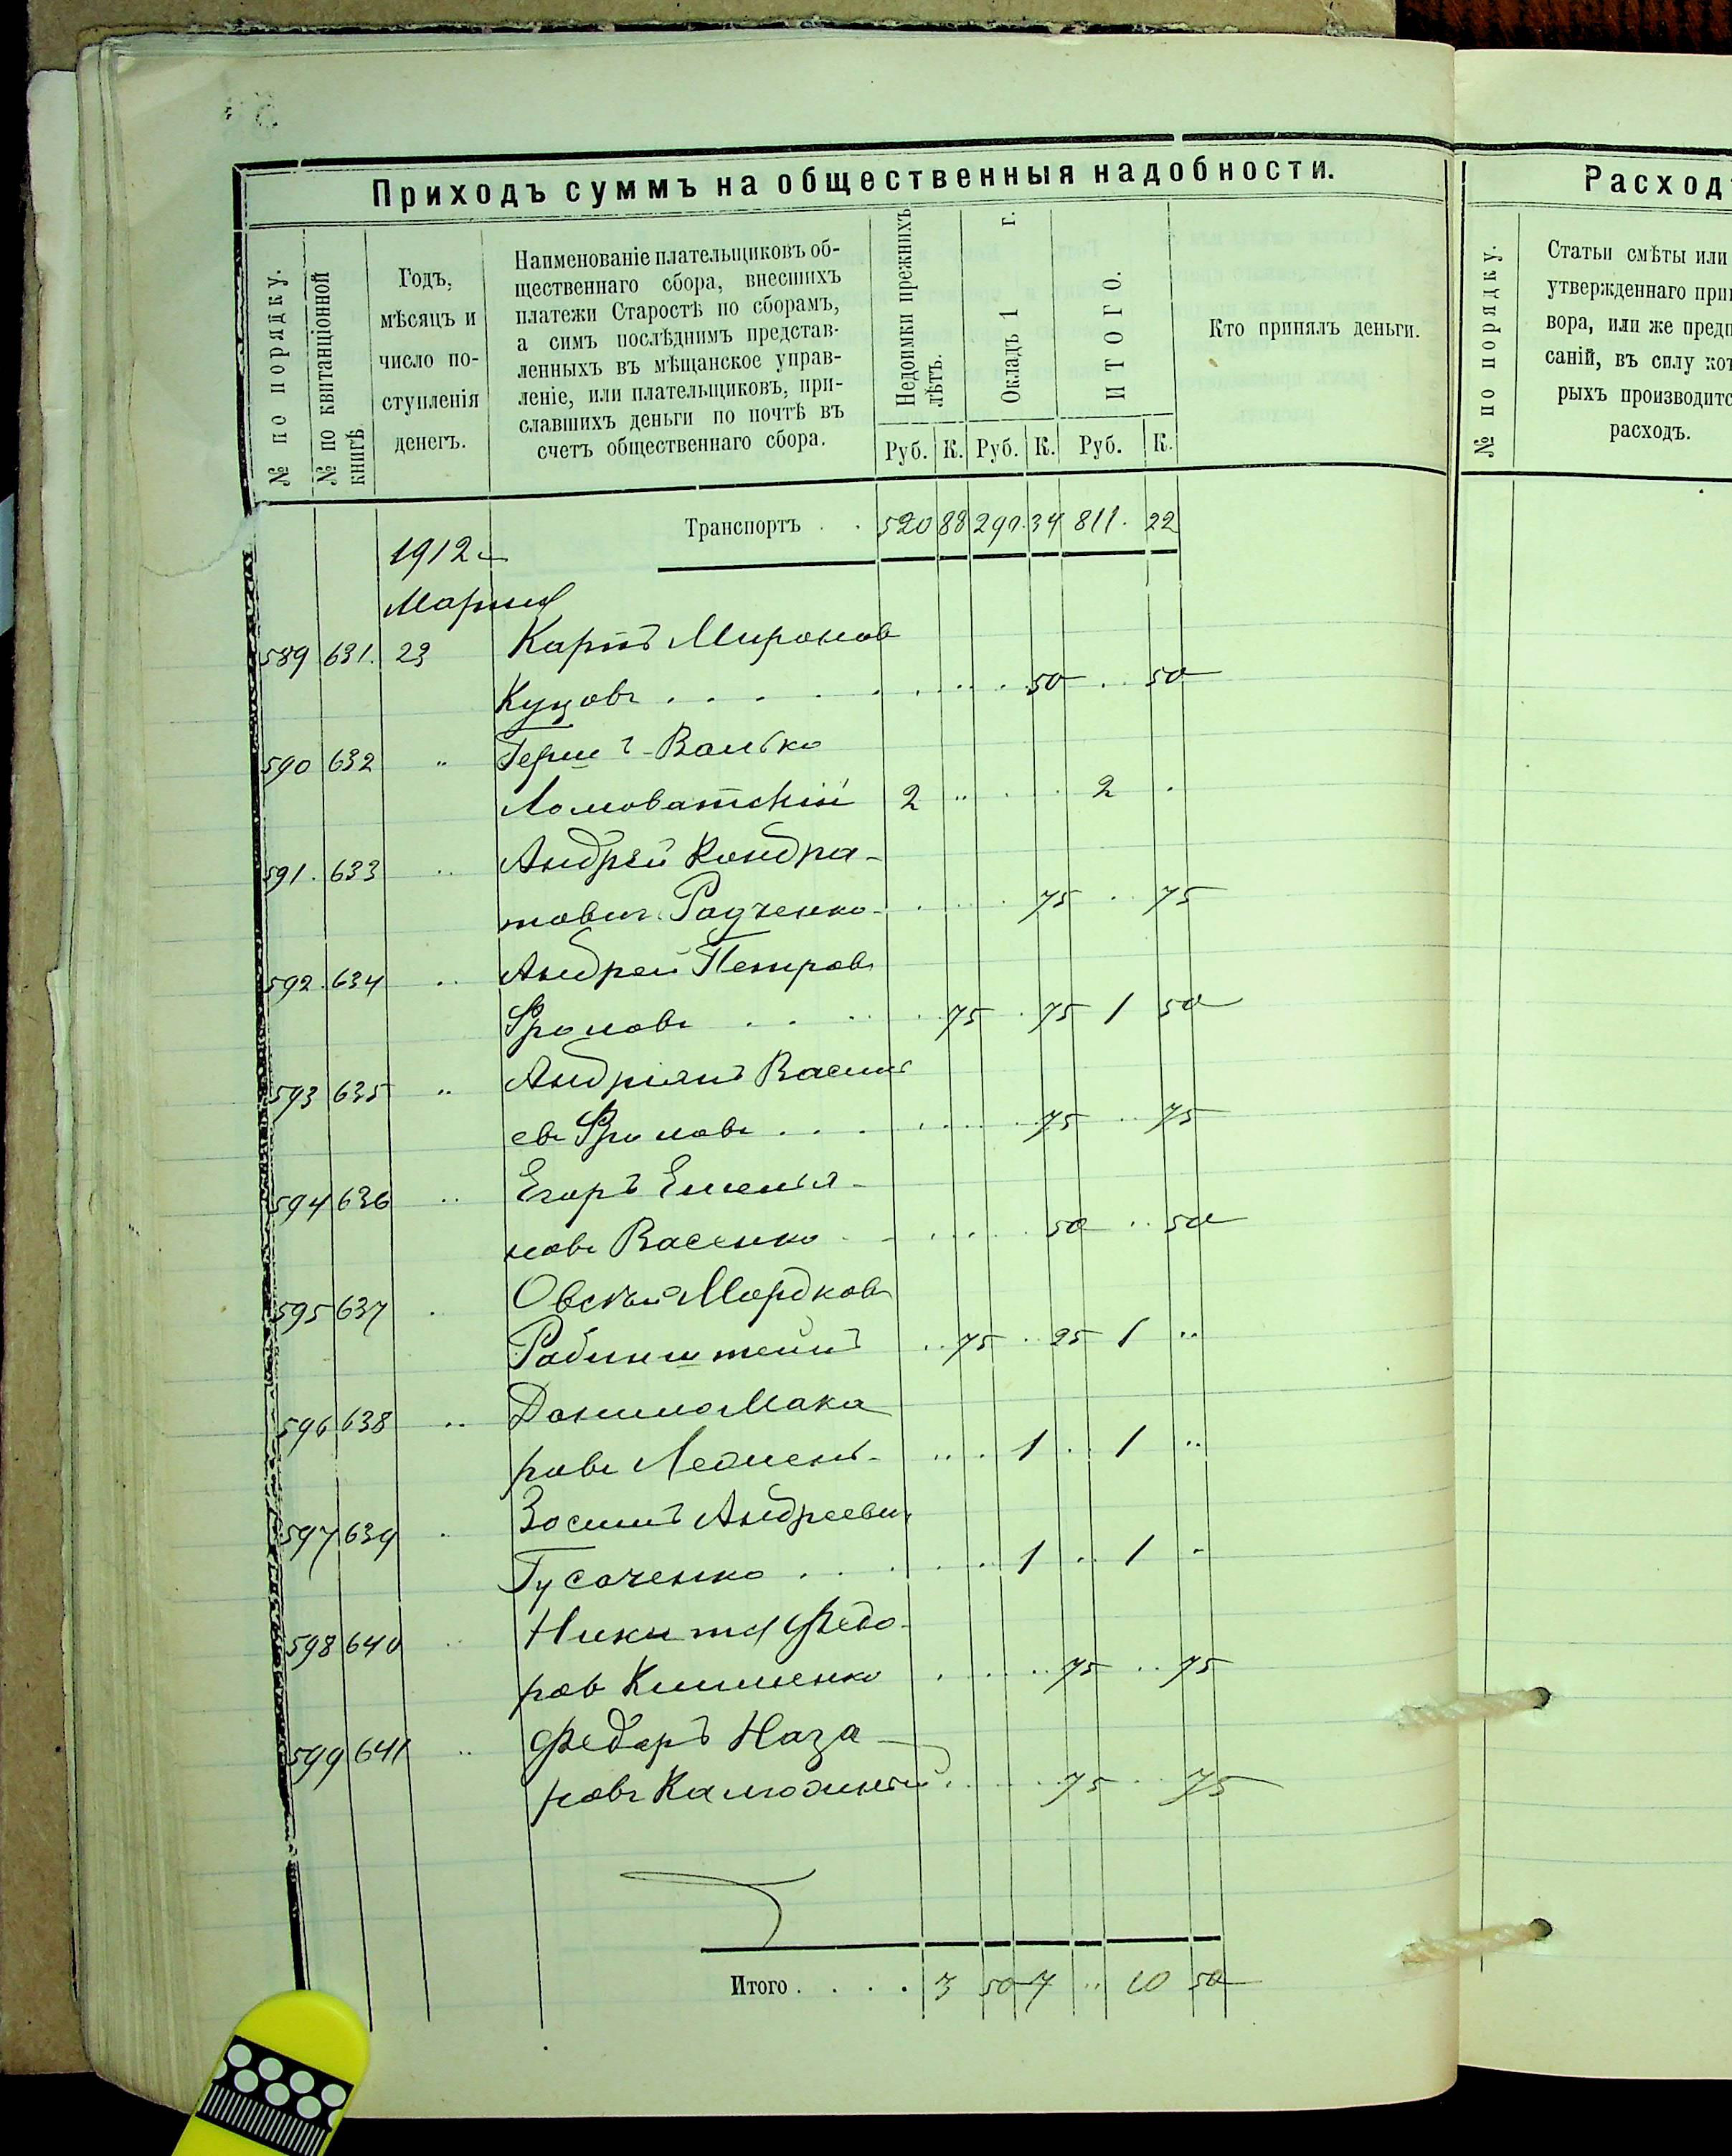 Приходъ суммъ на общественныя надобности.
№ по порядку.
№ по квитанціонной книгѣ.
Годъ, мѣсяцъ и число поступленія денегъ.
Наименованіе плательщиковъ об-
щественнаго сбора, внесшихъ
платежи Старостѣ по сборамъ,
а симъ послѣднимъ представ-
ленныхъ въ мѣщанское управ-
леніе, или плательщиковъ, при-
славшихъ деньги по почтѣ въ
счетъ общественнаго сбора.
Недоимки прежнихъ лѣтъ.
Окладъ 1 г.
ИТОГО.
Кто принялъ деньги.
Руб. К. Руб. К. Руб. К.
Транспортъ . . 520 88 290 34 811 22
1912 г.
Марта
589 631. 23 Карпъ Миронов
Куцовъ . . . . 50 . 50
590 632 " Герш
Ломоватскій 2 " . . 2 .
591. 633 " Андрей Кондра-
тович Радченко . . 75 . 75
592. 634 " Андрей Петров
Фроловъ . . . 75 . 75 1 50
593 635 " Андріянъ Василь
евъ Фроловъ . . . 75 . 75
594 636 " Егоръ Емелья-
новъ Васенко . . 50 . 50
595 637 . Овсѣй Мордков
Рабинштейнъ . . 75 . 25 1 "
596 638 " Данило Мака
ровъ . . 1 . 1 "
597 639 . Зосимъ Андреевич
Гусаченко . . . 1 . 1 "
598 640 " Никита Федо-
ров Клименко . . . 75 . 75
599 641 " Федоръ Наза
ровъ Калюжный . . 75 . 75
Итого . . . . 3 50 7 " 10 50
Расходъ
№ по порядку.
Статьи смѣты или
утвержденнаго при
вора, или же пред
саній, въ силу кот
рыхъ производитс
расходъ.